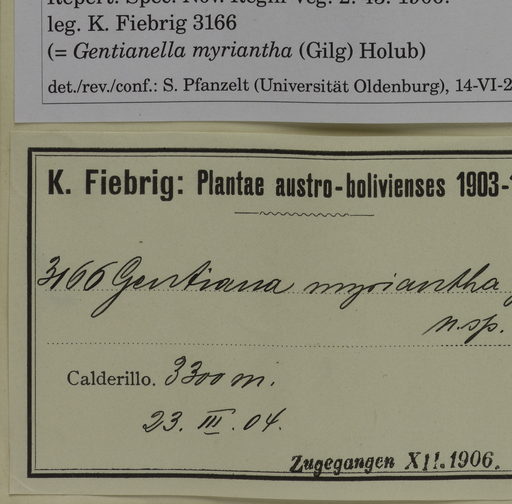 Repert. Spec. Nov. Regni Veg. 2: 43. 1906.
leg. K. Fiebrig 3166
(= Gentianella myriantha (Gilg) Holub)
det./rev./conf.: S. Pfanzelt (Universität Oldenburg), 14-VI-2
K. Fiebrig: Plantae austro-bolivienses 1903-
3166 Gentiana myriantha
n. sp.
Calderillo. 3300 m.
23. III. 04.
Zugegangen XII. 1906.